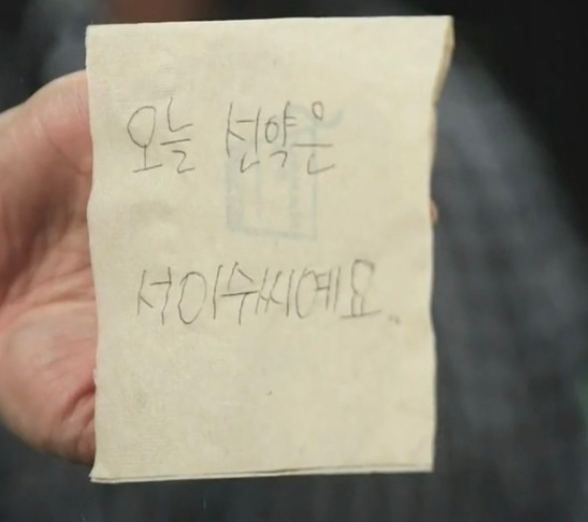 오늘 선약은
서이수씨예요.